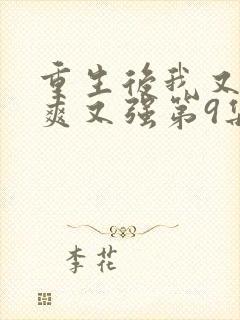 重生後我又
爽又强第9集
李花